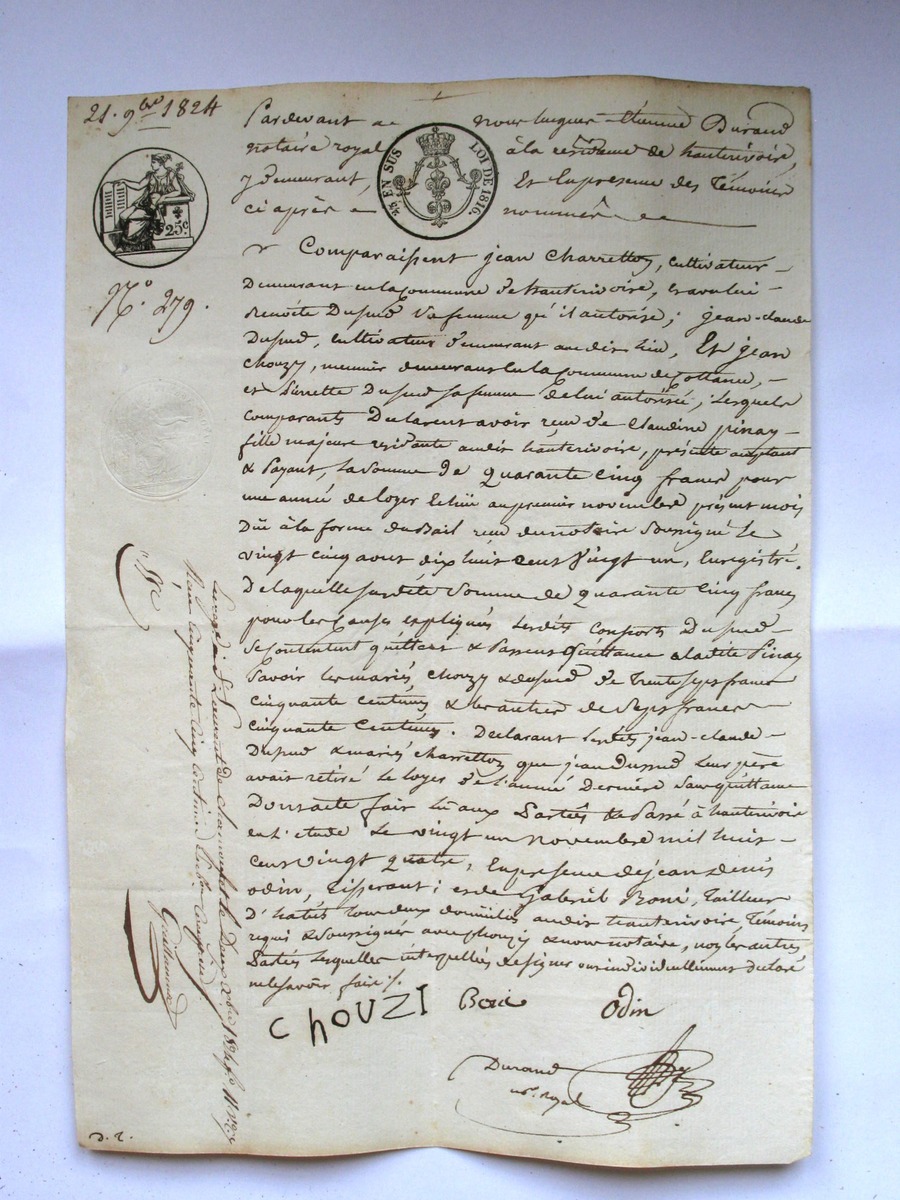 21. 9bre 1824
Pardevant nous hugues étienne Durand
notaire royal à la résidence de hauterivoire,
y demeurant, Et En presence des Témoins
ci après nommés
EN SUS LOI DE 1816.
25c
N.° 279.
Comparaissent jean Charretton, cultivateur
Demeurant en la Commune de hauterivoire, et avec lui
Benoite Dupeud Sa femme qu'il autorise; jean-claude
Dupeud, cultivateur Demeurant audit lieu, Et jean
Chouzy, meunier demeurant en la commune de Cottance,
et Pierrette Dupeud sa femme de lui autorisée, Lesquels
comparants Déclarent avoir reçu de Claudine pinay
fille majeure residante audit hauterivoire, présente acceptant
& payant, La Somme de quarante cinq francs pour
une année de loyer échüe au premier novembre présent mois
Düe à la forme du Bail reçu du notaire Soussigné le
vingt cinq aout dix huit cent vingt un, Enregistré.
De laquelle susdite Somme de quarante cinq francs
pour les Causes expliquées Lesdits Consorts Dupeud
se contentent quittent & Passent Quittance à ladite Pinay
Savoir les mariés Chouzy & dupeud de Trente Sept francs
cinquante centimes & les autres de Sept francs
cinquante Centimes. Déclarant Lesdits jean-claude
Dupeud & mariés charretton que jean Dupeud Leur père
avait retiré Le loyer de L'année Dernière Sans quittance
Dont acte fait Lû aux Parties & Passé à hauterivoire
en L'étude Le vingt un novembre mil huit
cent vingt quatre, En presence de jean denis
odin, Tisserant; et de Gabriel Boné, Tailleur
D'habits Tous deux domiciliés audit hauterivoire Témoins
requis & Soussignés avec chouzy & nous notaire, non les autres
Parties Lesquelles interpellées de signer ont individuellement déclaré
ne le savoir faire /.
CHOUZI Boné odin
Durand
no. royal
Enregistré à St Laurent de Chamousset le Deux Xbre 1824
Reçu cinquante cinq centimes
D. R.